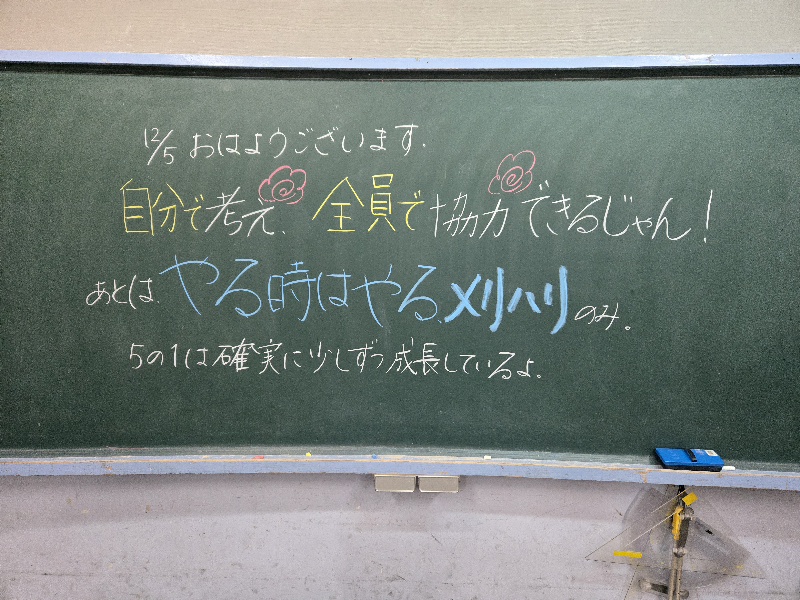 12/5 おはようございます.
自分で考え、全員で協力できるじゃん!
あとは、やる時はやる、メリハリのみ。
5の1は確実に少しずつ成長しているよ。